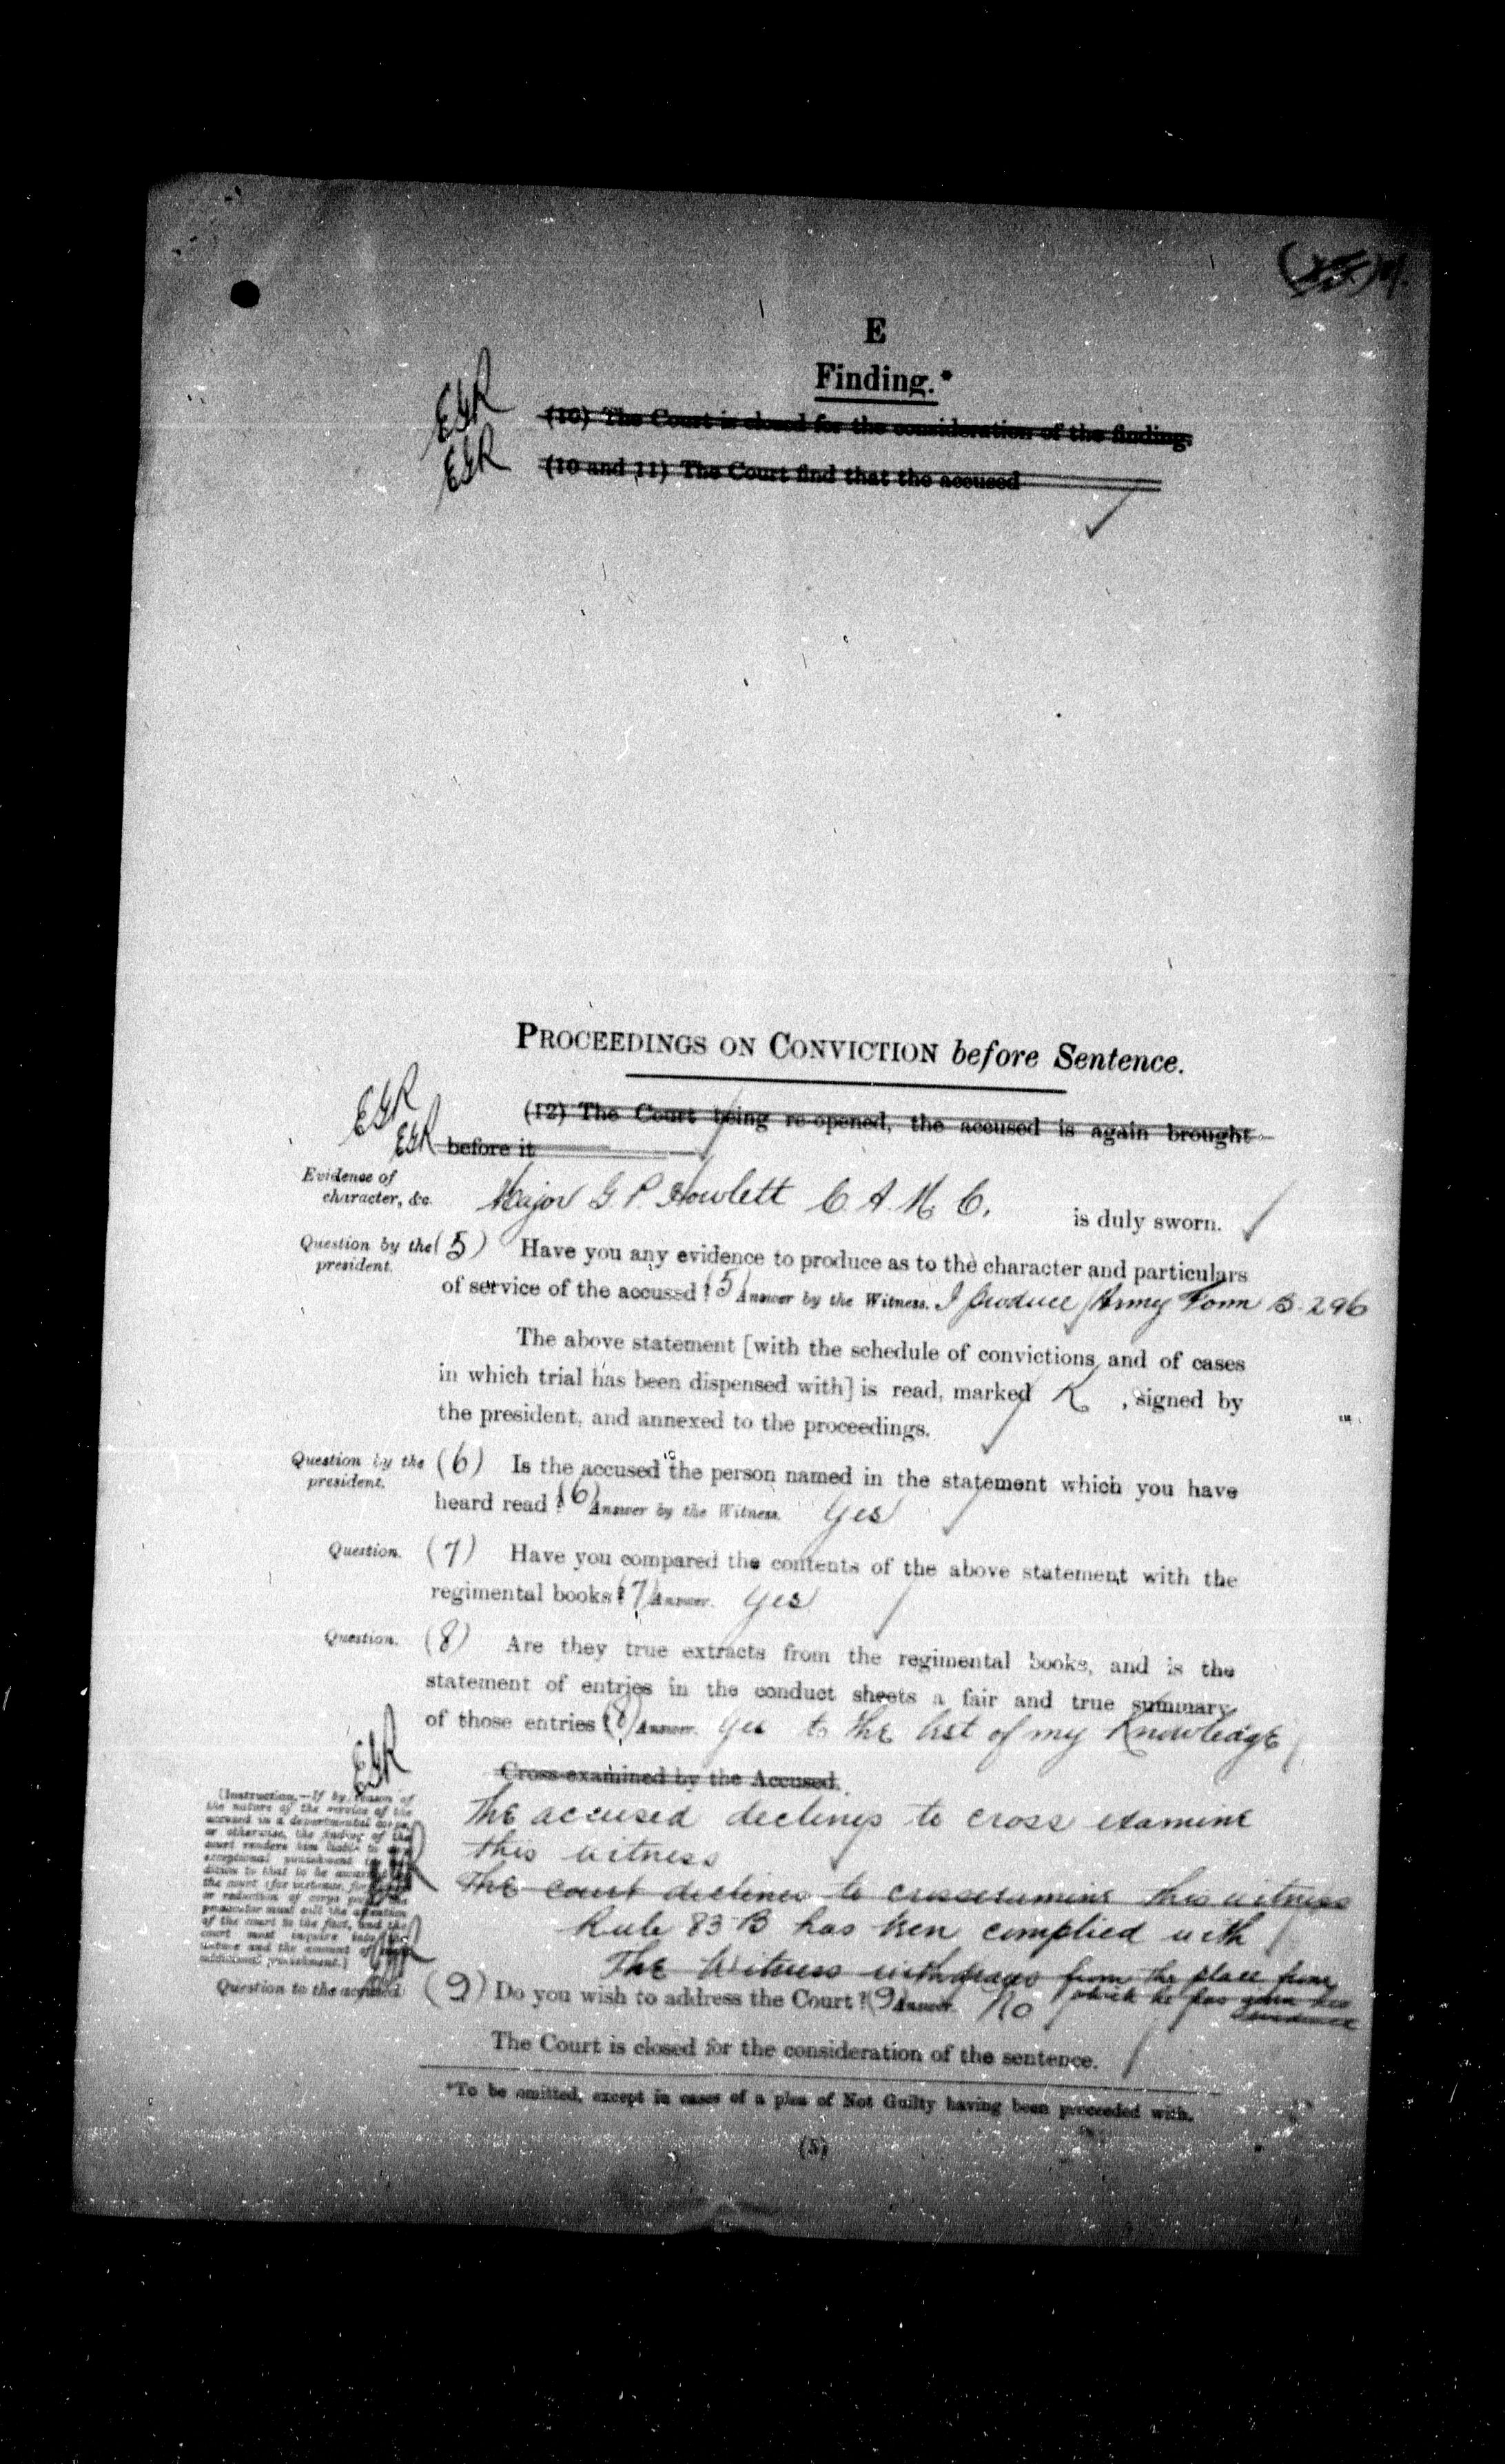 E
Finding.*
EGR (10) The Court is closed for the consideration of the finding.
EGR (10 and 11) The Court find that the accused
PROCEEDINGS ON CONVICTION before Sentence.
EGR (12) The Court being re-opened, the accused is again brought
EGR before it
Evidence of
character, &c. Major G. P. Howlett C. A. M. C. is duly sworn.
Question by the (5) Have you any evidence to produce as to the character and particulars
president.
of service of the accused? (5) Answer by the Witness. I produce Army Form B. 296
The above statement [with the schedule of convictions and of cases
in which trial has been dispensed with] is read, marked K, signed by
the president, and annexed to the proceedings.
Question by the (6) Is the accused the person named in the statement which you have
president.
heard read? (6) Answer by the Witness. Yes
Question. (7) Have you compared the contents of the above statement with the
regimental books? (7) Answer. Yes
Question. (8) Are they true extracts from the regimental books, and is the
statement of entries in the conduct sheets a fair and true summary
of those entries? (8) Answer. Yes to the best of my Knowledge
EGR
Cross-examined by the Accused.
[Instruction.—If by reason of
the nature of the service of the
accused in a departmental corps,
or otherwise, the finding of the
court renders him liable to
exceptional punishment
the court
or reduction of corps
prosecutor must call the attention
of the court to the fact, and the
court must inquire into the
nature and the amount of
additional punishment.]
The accused declines to cross examine
this witness
The court declines to crossexamine this witness
Rule 83 B has been complied with
The Witness withdraws from the place from
which he has given his
evidence
Question to the accused. (9) Do you wish to address the Court? (9) Answer. No
The Court is closed for the consideration of the sentence.
*To be omitted, except in cases of a plea of Not Guilty having been proceeded with.
(5)